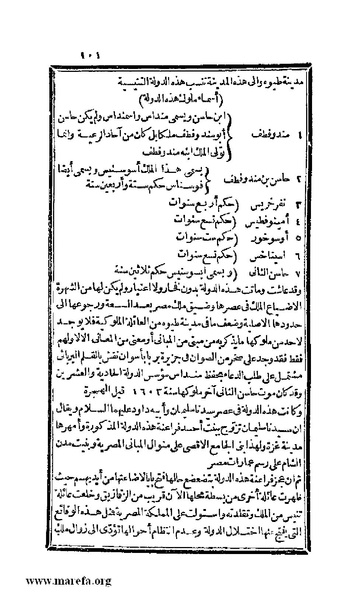 ١٠٦
مدينة طيوه والى هذه المدينة تنسب هذه الدولة التنيسية
(أسماء ملوك هذه الدولة)
ابن حاسن ويسمى منداس واسمنداس ولم يكن حاسن
١ مندوقطف أبو مندوقطف ملكا بل كان من آحاد الرعية وانما
تولى الملك ابنه مندوقطف
٢ حاسن بن مندوقطف يسمى هذا الملك أسوسنيس ويسمى أيضا
فوسناس حكم ستة وأربعين سنة
٣ نفرخريس (حكم أربع سنوات
٤ أمينوفطيس (حكم تسع سنوات
٥ أوسوخور (حكم ست سنوات
٦ اسيناخس (حكم تسع سنوات
٧ حاسن الثانى (ويسمى أبسوسنيس حكم ثلاثين سنة
وقد عاشت وماتت هذه الدولة بدون فخار ولا اعتبار ولم يكن لها من الشهرة
الا ضياع الملك فى عصرها وضيق ملك مصر بعد السعة ورجوعها الى
حدودها الاصلية وضعف ما فى مدينة طيوه من العائلة الملوكية فلا يوجد
لاحد من ملوكها ما يذكر به من مبنى من المبانى أو معنى من المعانى الا لاولهم
فقط فقد وجد على صخر من الصوان فى جزيرة بربا بأسوان نقش بالقلم البربائى
مشتمل على طلب الدعاء بحفظ منداس مؤسس الدولة الحادية والعشرين
وقد كان موت حاسن الثانى آخر ملوكها سنة ١٦٠٣ قبل الهجرة
وكانت هذه الدولة فى عصر سيدنا سليمان وأبيه داود عليهما السلام ويقال
ان سيدنا سليمان تزوج ببنت أحد فراعنة هذه الدولة المذكورة وأمهرها
مدينة غزة ولهذا بنى الجامع الاقصى على منوال المبانى المصرية وبنيت مدن
الشام على رسم عمارات مصر
ثم ان عجز فراعنة هذه الدولة وتضعضع حالها أفقع بالاضاعتها من أيديهم حيث
ظهرت عائلة أخرى من بسطة محلها الآن قريب من الزقازيق وخلعت عائلة
تنيس من الملك وتقلدته واستولت على المملكة المصرية فمثل هذه الوقائع
التى ينتج عنها اختلال الدولة وعدم انتظام أحوالها تؤدى الى زوال ملك
www.marefa.org